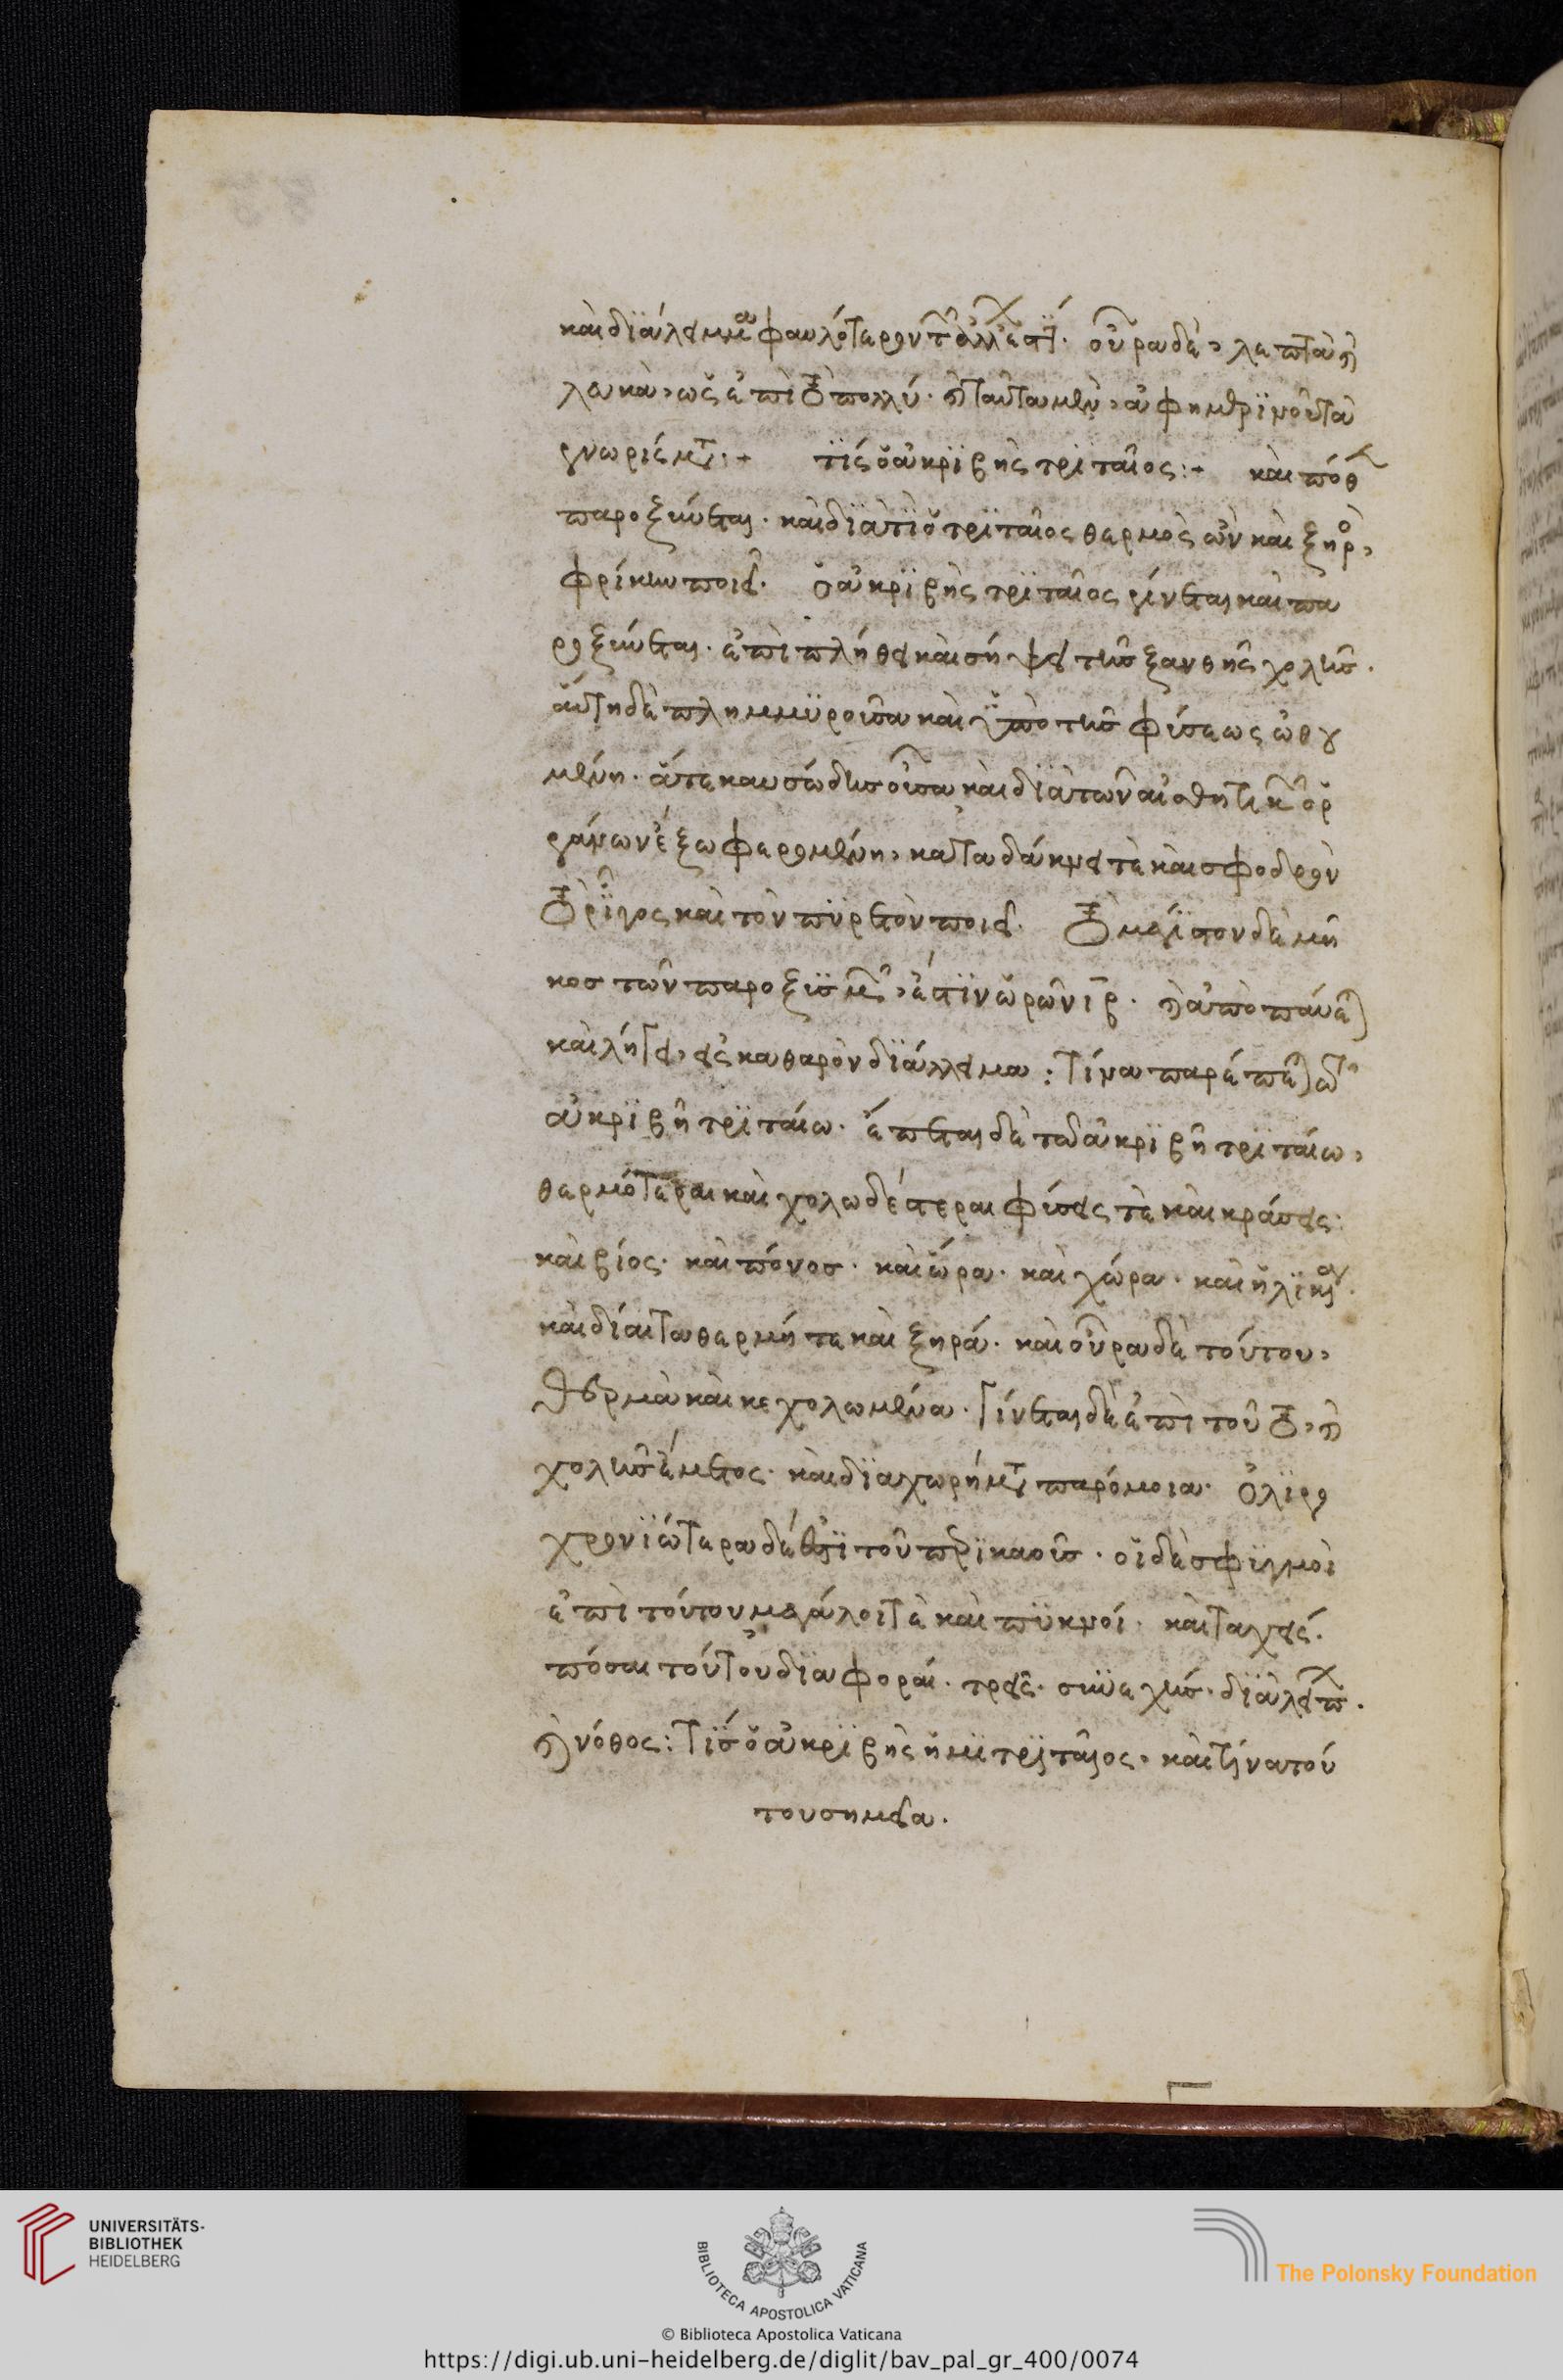 καὶ διάλειμμα φαυλότερον τῶν ἄλλων ἐστί. οὖρα δὲ, λεπτὰ καὶ
λευκὰ, ὡς ἐπὶ τὸ πολύ. καὶ ταῦτα μὲν, ἀφημερινοῦ τὰ
γνωρίσματα :+ τίς ὁ ἀκριβὴς τριταῖος :+ καὶ πόθεν
παροξύνεται. καὶ διατὶ ὁ τριταῖος θερμὸς ὢν καὶ ξηρὸς,
φρίκην ποιεῖ. ὁ ἀκριβὴς τριταῖος γίνεται καὶ πα
ροξύνεται. ἐπὶ πλήθει καὶ σήψει τῆς ξανθῆς χολῆς.
αὕτη δὲ πλημμυροῦσα καὶ ὑπὸ τῆς φύσεως ὠθου
μένη. ἅτε καυσώδης οὖσα καὶ διὰ τῶν αἰσθητικῶν ὀρ
γάνων ἔξω φερομένη, κατὰ δάκνει τε καὶ σφοδρὸν
τὸ ῥῖγος καὶ τὸν πυρετὸν ποιεῖ. τὸ μέγιστον δὲ μῆ
κος τῶν παροξυσμῶν, ἐστὶν ὡρῶν ιβ. καὶ ἀποπαύεται
καὶ λήγει, εἰς καθαρὸν διάλλειμα : τίνα παρέπεται τῶ
ἀκριβῆ τριταίω. ἕπεται δὲ τῶ ἀκριβῆ τριταίω,
θερμότεραι καὶ χολωδέστεραι φύσεις τὲ καὶ κράσεις :
καὶ βίος. καὶ πόνος. καὶ ὥρα. καὶ χώρα. καὶ ἡλικία.
καὶ δίαιτα θερμή τε καὶ ξηρά. καὶ οὖρα δὲ τούτου,
θερμὰ καὶ κεχολωμένα. γίνεται δὲ ἐπὶ τοῦτο, καὶ
χολῆς ἔμετος. καὶ διαχωρήματα παρόμοια. ὀλιγο
χρονιώτερα δέ ἐστι τοῦ περικαοῦς. οἱ δὲ σφυγμοὶ
ἐπὶ τούτου μεγάλοι τὲ καὶ πυκνοί. καὶ ταχεῖς.
πόσαι τούτου διαφοραί. τρεῖς. συνεχής. διαλείπων.
καὶ νόθος : τίς ὁ ἀκριβὴς ἡμιτριταῖος, καὶ τίνα τού
του σημεῖα.
UNIVERSITÄTS-
BIBLIOTHEK
HEIDELBERG
BIBLIOTECA APOSTOLICA VATICANA
The Polonsky Foundation
© Biblioteca Apostolica Vaticana
https://digi.ub.uni-heidelberg.de/diglit/bav_pal_gr_400/0074